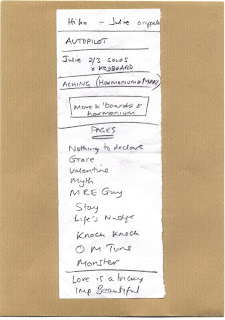 Hiho - Julie
AUTOPILOT
Julie 2/3 SOLOS
& KEYBOARD
ACHING (HARMONIUM &
Move k'boards &
harmonium
PAGES
Nothing to declare
Grace
Valentine
Myth
MRE Guy
Stay
Life's Nudge
Knock Knock
O M Tune
Monster
Love is a tricky
Imp Beautiful